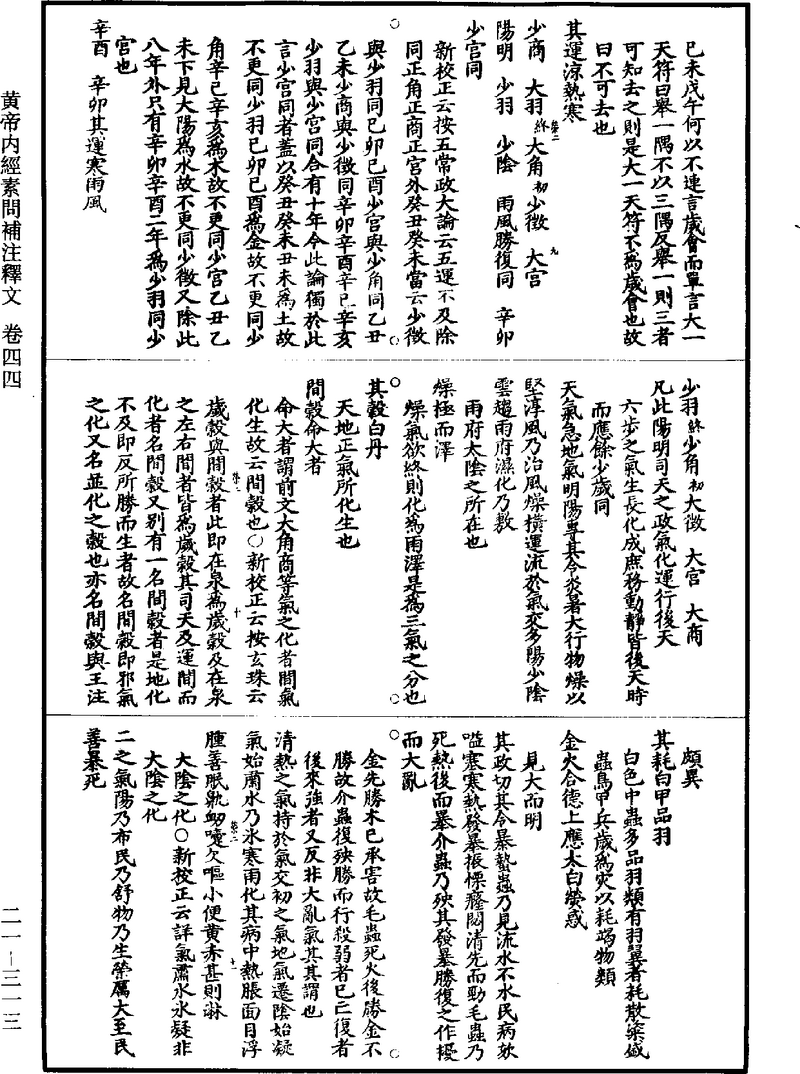 黄帝内經素問補注釋文　卷四四
二一－三一三
已未戊午何以不連言歲會而單言大一
天符曰舉一隅不以三隅反舉一則三者
可知去之則是大一天符不爲歲會也故
曰不可去也
其運涼熱寒
少商　大羽終　大角初　少徵　大宮
陽明　少羽　少陰　雨風勝復同　辛卯
少宮同
新校正云按五常政大論云五運不及除
同正角正商正宮外癸丑癸未當云少徵
與少羽同已卯已酉少宮與少角同乙丑
乙未少商與少徵同辛卯辛酉辛巳辛亥
少羽與少宮同合有十年今此論獨於此
言少宮同者蓋以癸丑癸未丑未爲土故
不更同少羽已卯已酉爲金故不更同少
角辛已辛亥爲木故不更同少宮乙丑乙
未下見大陽爲水故不更同少徵又除此
八年外只有辛卯辛酉二年爲少羽同少
宮也
辛酉　辛卯其運寒雨風
少羽終　少角初　大徵　大宮　大商
凡此陽明司天之政氣化運行後天
六步之氣生長化成庶務動靜皆後天時
而應餘少歲同
天氣急地氣明陽專其令炎暑大行物燥以
堅淳風乃治風燥橫運流於氣交多陽少陰
雲趨雨府濕化乃敷
雨府太陰之所在也
燥極而澤
燥氣欲終則化爲雨澤是爲三氣之分也
其穀白丹
天地正氣所化生也
間穀命大者
命大者謂前文大角商等氣之化者間氣
化生故云間穀也○新校正云按玄珠云
歲穀與間穀者此即在泉爲歲穀及在泉
之左右間者皆爲歲穀其司天及運間而
化者名間穀又別有一名間穀者是地化
不及即反所勝而生者故名間穀即邪氣
之化又名並化之穀也亦名間穀與王注
頗異
其耗白甲品羽
白色中蟲多品羽類有羽翼者耗散粢盛
蟲鳥甲兵歲爲災以耗竭物類
金火合德上應太白熒惑
見大而明
其政切其令暴蟄蟲乃見流水不冰民病欬
嗌塞寒熱發暴振慄癃閟清先而勁毛蟲乃
死熱後而暴介蟲乃殃其發暴勝復之作擾
而大亂
金先勝木已承害故毛蟲死火後勝金不
勝故介蟲復殃勝而行殺弱者已亡復者
後來強者又反非大亂氣其其謂也
清熱之氣持於氣交初之氣地氣遷陰始凝
氣始肅水乃氷寒雨化其病中熱脹面目浮
腫善眠鼽衄嚏欠嘔小便黄赤甚則淋
大陰之化○新校正云詳氣肅水氷凝非
大陰之化
二之氣陽乃布民乃舒物乃生榮厲大至民
善暴死